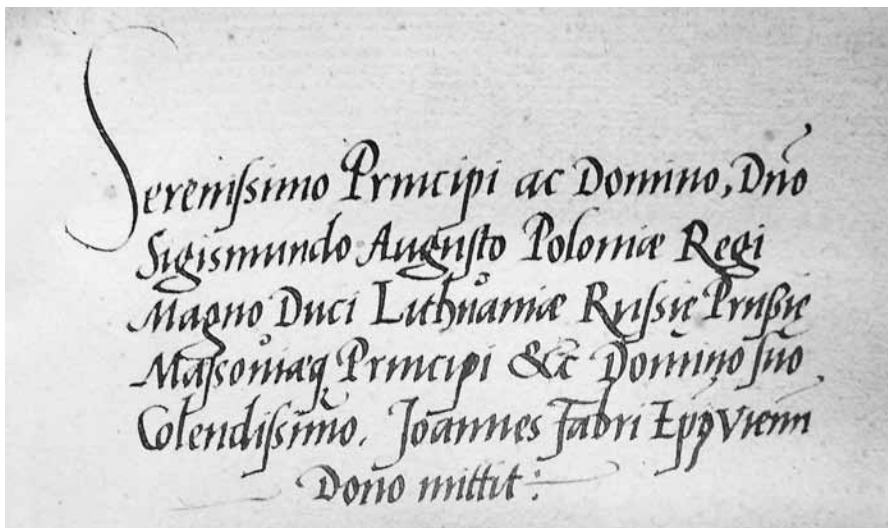 Serenissimo Principi ac Domino, Dño
Sigismundo Augusto Poloniæ Regi
Magno Duci Lithuaniæ Russię Prussię
Massouiæq; Principi &c̃ Domino suo
Colendissimo. Joannes Fabri Epüs Vienñ
Dono mittit: